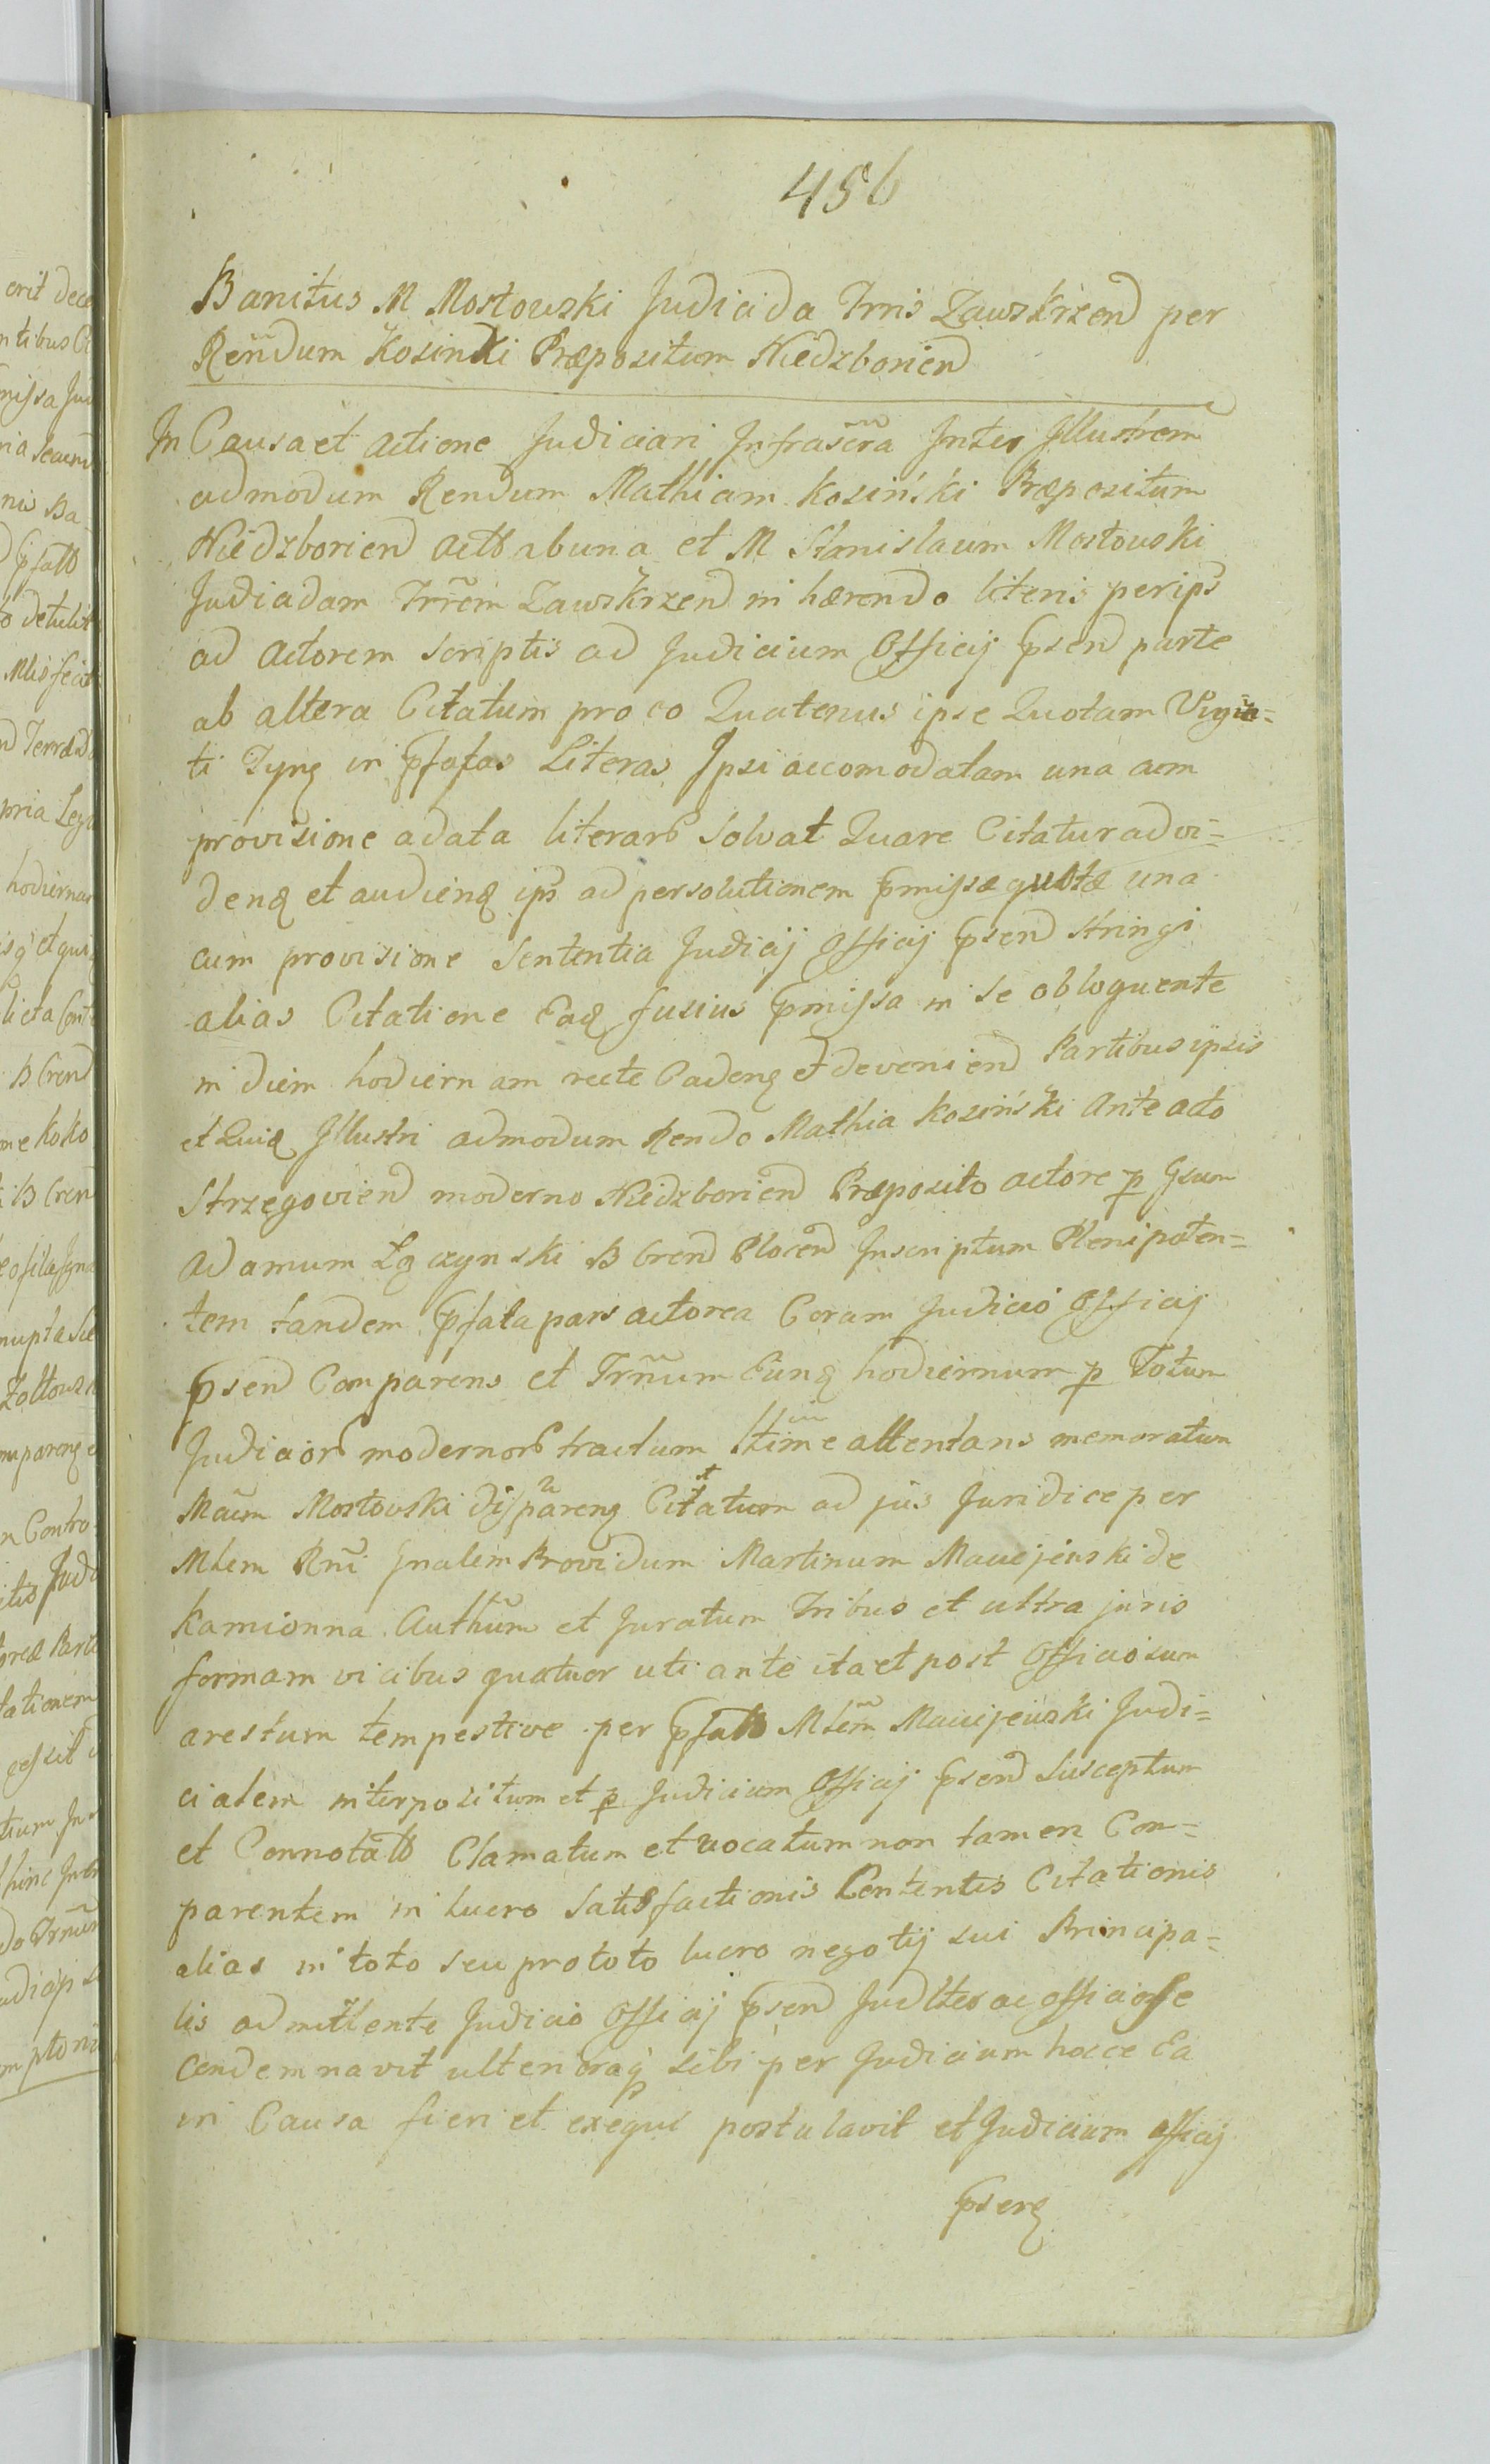 456
Banitus M Mostowski Judicida Trris Zawskrzend per
Rendum Kosinski Præpositum Niedzboriend
In Causa et Actione Judiciari Infrascra Inter Illustrem
admodum Rendum Mathiam Kosiński Præpositum
Niedzboriend ab una et M Stanislaum Mostowski
Judicidam Trrem Zawskrzend in hærendo literis per ips
ad Actorem scriptis ad Judicium Officij psend parte
ab altera Citatum pro eo Quatenus ipse Quotam Vigin=
ti Tynf in pfatas Literas Ipsi accomodatam una cum
provisione a data literar solvat Quare Citatur ad vi=
dend et audiend ips ad persolutionem pmissæ quotæ una
cum provisione Sententia Judicij Officij psend stringi
alias Citatione Ead fusius pmissa in se obloquente
in diem hodiernam recte Cadend et deveniend Partibus ipsis
et Quia Illustri admodum Rendo Mathia Kosiński Ante acto
Strzegoviend moderno Niedzboriend Præposito actore p Gsum
Adamum B Grend Plocend Inscriptum Plenipoten=
tem tandem pfata pars actorea Coram Judicio Officij
psend Comparens et Trnum Eund hodiernum p Totum
Judicior modernor tractum ltime attentans memoratum
Mcum Mostowski dispareng Citatum ad jus Juridice per
Mtem Rni Gnalem Providum Martinum Maciejewski de
Kamionna Authum et Juratum Tribus et ultra juris
formam vicibus quatuor uti ante ita et post Officiosum
arestum tempestive per pfat Mtem Maciejewski Judi=
cialem interpositum et p Judicium Officij psend susceptum
et Connotat Clamatum et vocatum non tamen Com=
parentem in lucro Satisfactionis Contentis Citationis
alias in toto seu pro toto lucro negotij sui Principa=
lis admittente Judicio Officij psend Judlter ac officiose
Condemnavit ulterioraq sibi per Judicium hocce Ea
in Causa fieri et exequi postulavit et Judicium Officij
psend